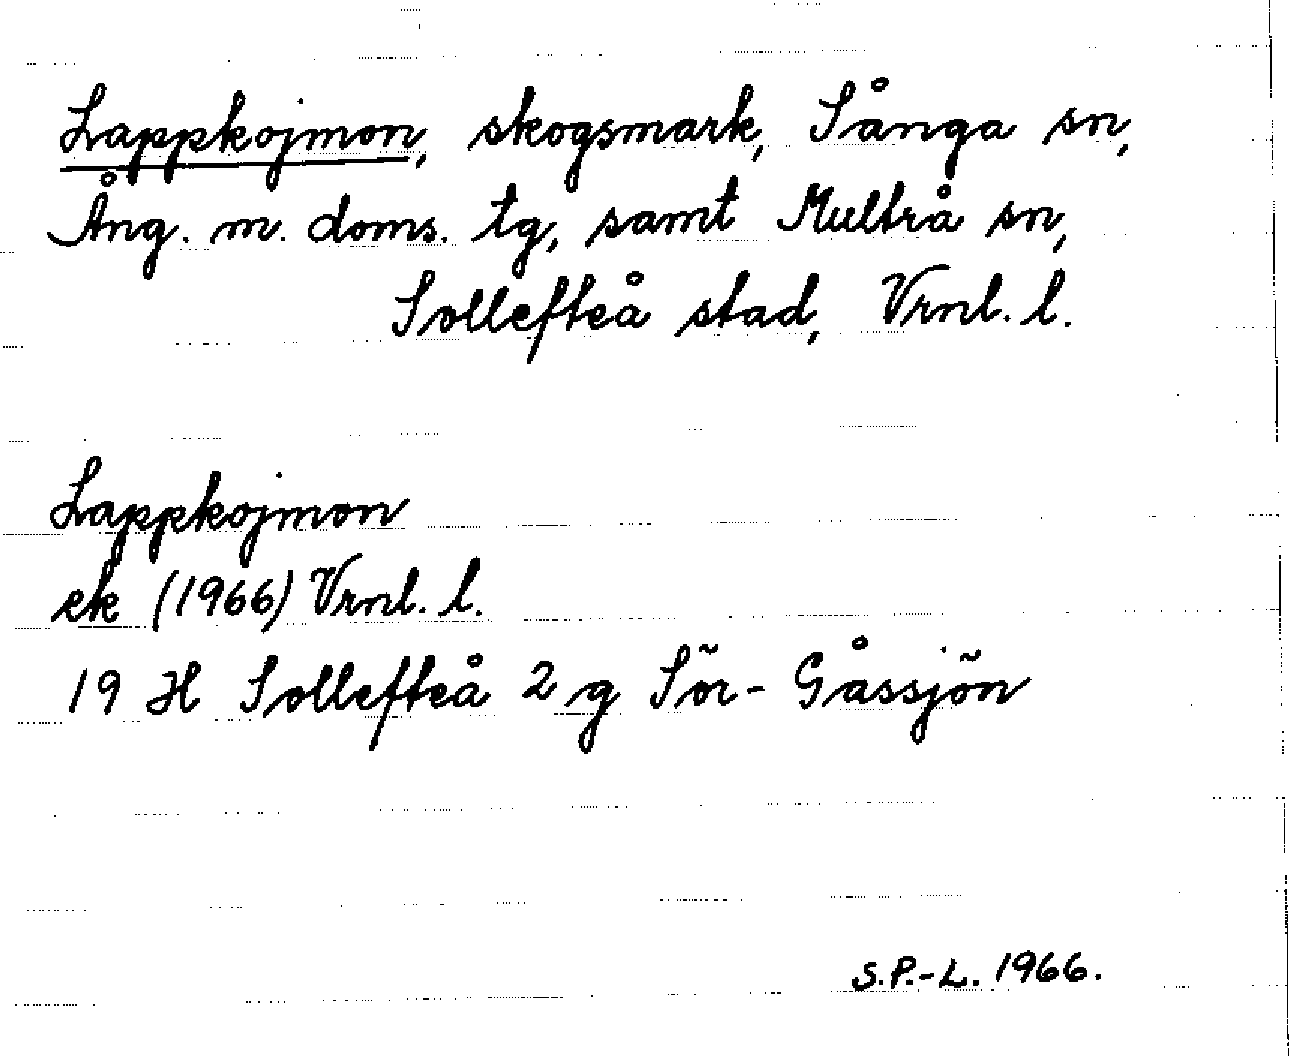 Lappkojmon, skogsmark, Sånga sn,
Ång. m. doms. tg, samt Multrå sn,
Sollefteå stad, Vrnl. l.
Lappkojmon
ek (1966) Vrnl. l.
19 H Sollefteå 2 g Sör-Gåssjön
S.P.-L. 1966.